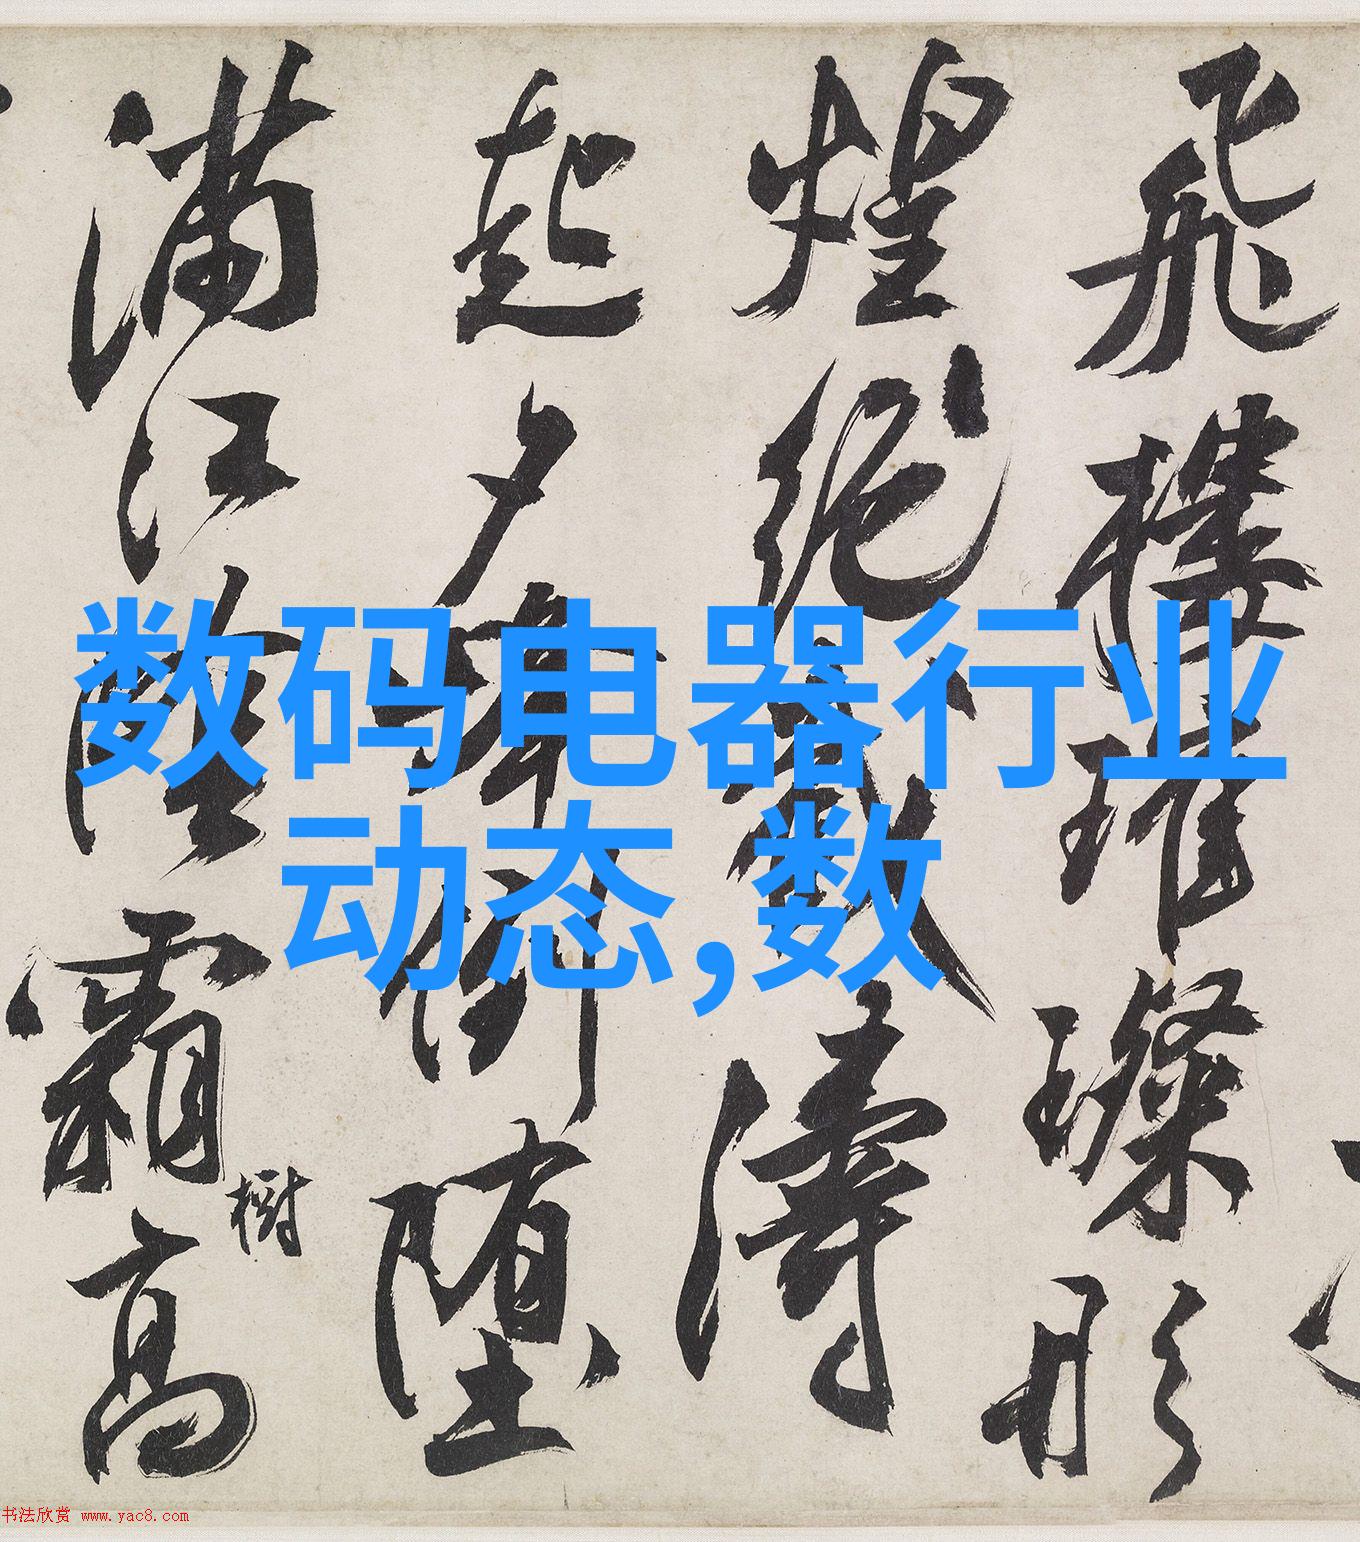 数码电器行业
动态,数
飛樓璀璨形
煌濤
起夕倒堕
滿江陰霜高
樹
书法欣赏 www.yac8.com